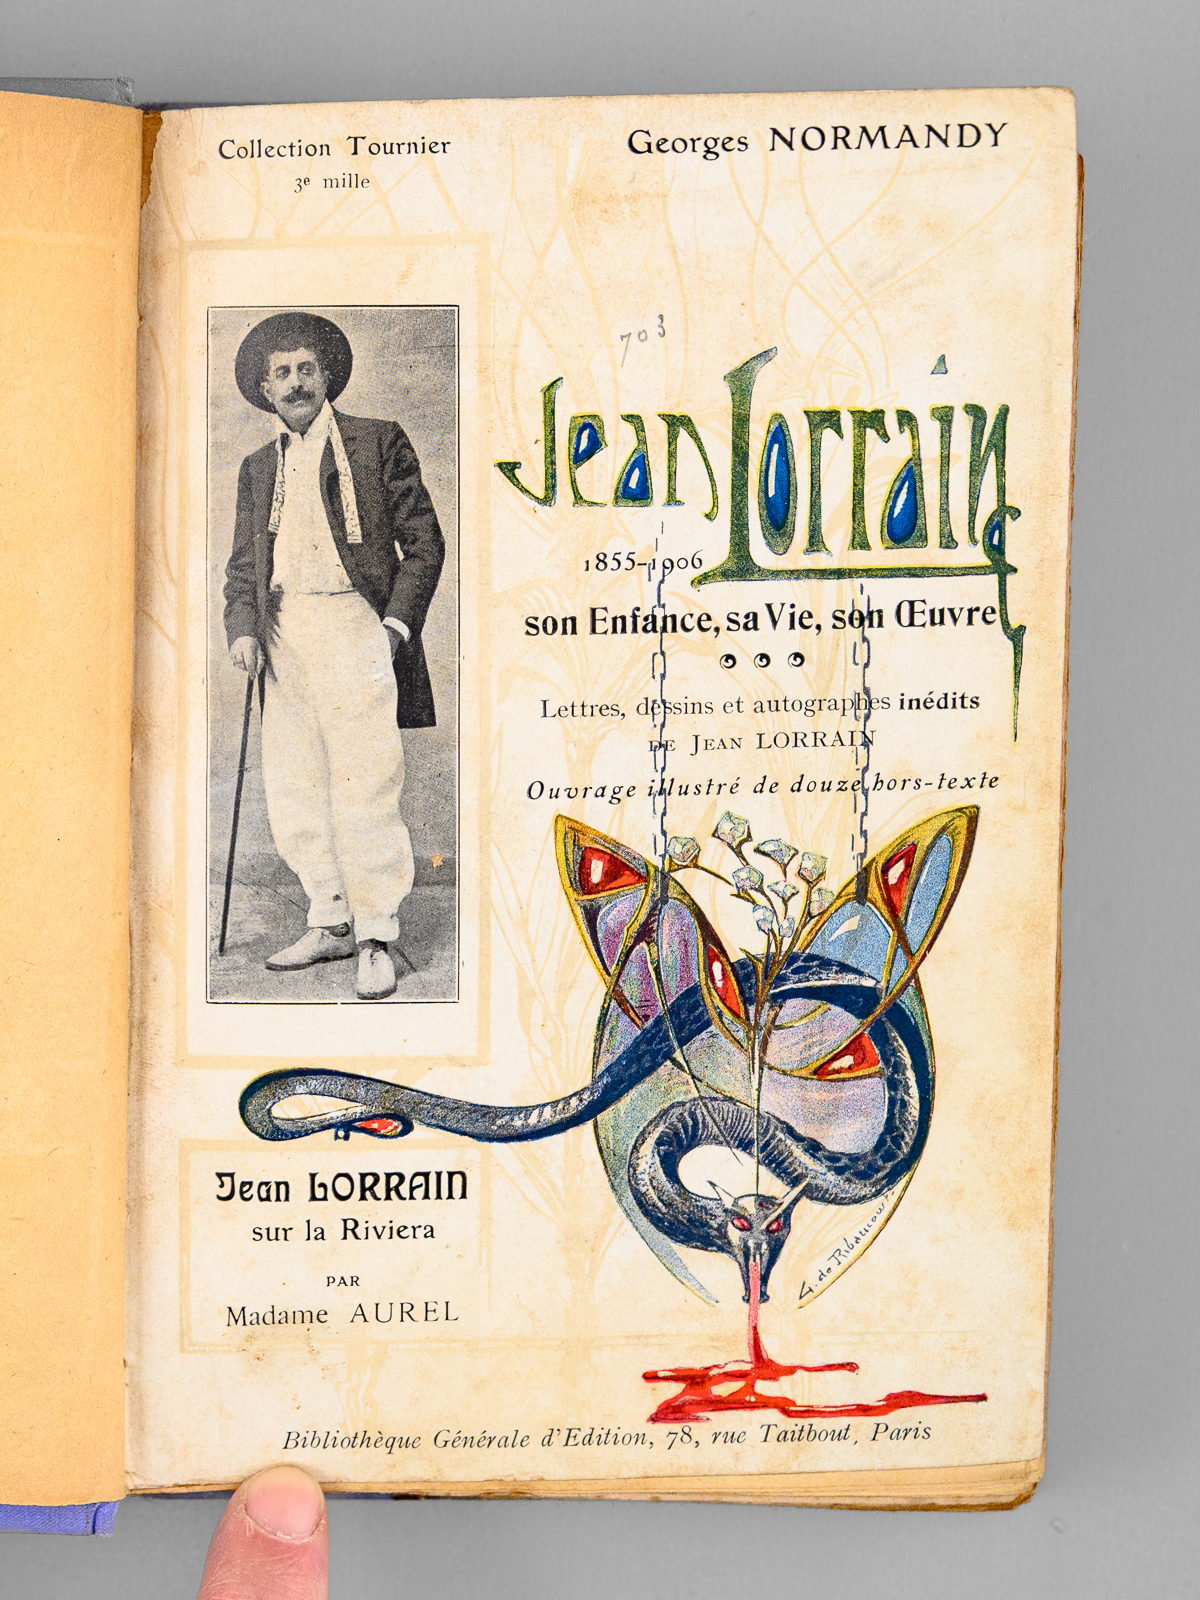 Collection Tournier
3e mille
Georges NORMANDY
703
Jean Lorrain
1855-1906
son Enfance, sa Vie, son Œuvre
Lettres, dessins et autographes inédits
DE JEAN LORRAIN
Ouvrage illustré de douze hors-texte
Jean LORRAIN
sur la Riviera
PAR
Madame AUREL
G. de Ribaucourt
Bibliothèque Générale d'Edition, 78, rue Taitbout, Paris